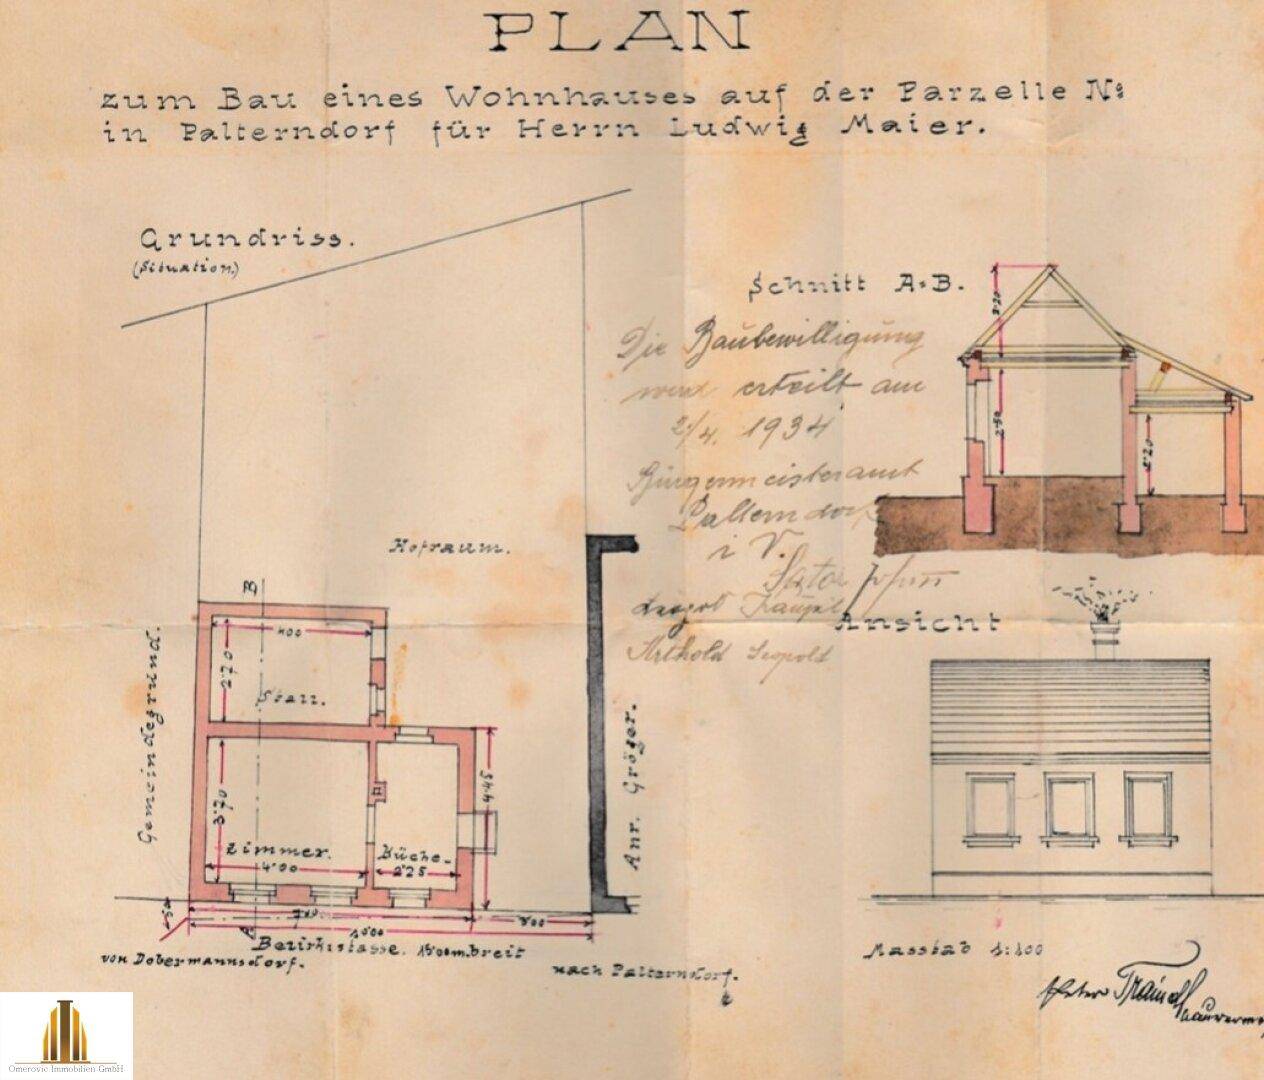 PLAN
zum Bau eines Wohnhauses auf der Parzelle No
in Palterndorf für Herrn Ludwig Maier.
Grundriss.
(Situation)
Schnitt A-B.
3·20
2·50
2·20
Die Baubewilligung
wird erteilt am
2/4. 1934
Bürgermeisteramt
Palterndorf
i V.
Leopold
Arthold Leopold
Hofraum.
Ansicht
B
400
2·70
Stall.
Gemeindegrund.
Anr. Gröger.
3·70
4·45
Zimmer.
4·00
Küche.
2·25
A
3·00
10·00
Bezirksstasse. 15·00m.breit
von Dobermannsdorf.
nach Palterndorf.
Masstab 1:100
Omerovic Immobilien GmbH